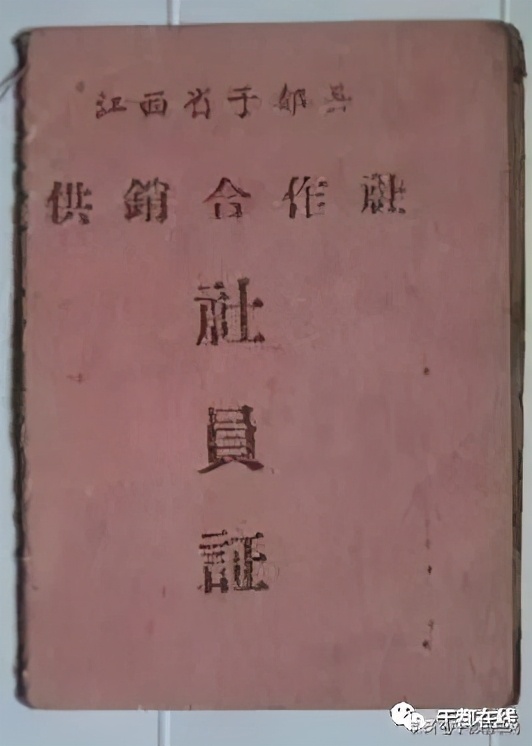 江西省于都县
供銷合作社
社員証
于都在线